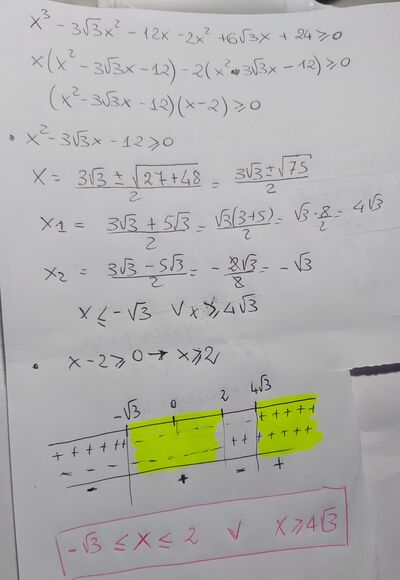 x³ - 3√3x² - 12x - 2x² + 6√3x + 24 ≥ 0
x(x² - 3√3x - 12) - 2(x² - 3√3x - 12) ≥ 0
(x² - 3√3x - 12)(x - 2) ≥ 0
• x² - 3√3x - 12 ≥ 0
x = (3√3 ± √(27+48))/2 = (3√3 ± √75)/2
x1 = (3√3 + 5√3)/2 = √3(3+5)/2 = √3 · 8/2 = 4√3
x2 = (3√3 - 5√3)/2 = - 2√3/2 = - √3
x ≤ -√3 ∨ x ≥ 4√3
• x - 2 ≥ 0 → x ≥ 2
-√3 0 2 4√3
+ + + + + + - - - - - - + + + + +
- - - - - - + + + + + + +
- + - +
-√3 ≤ x ≤ 2 ∨ x ≥ 4√3